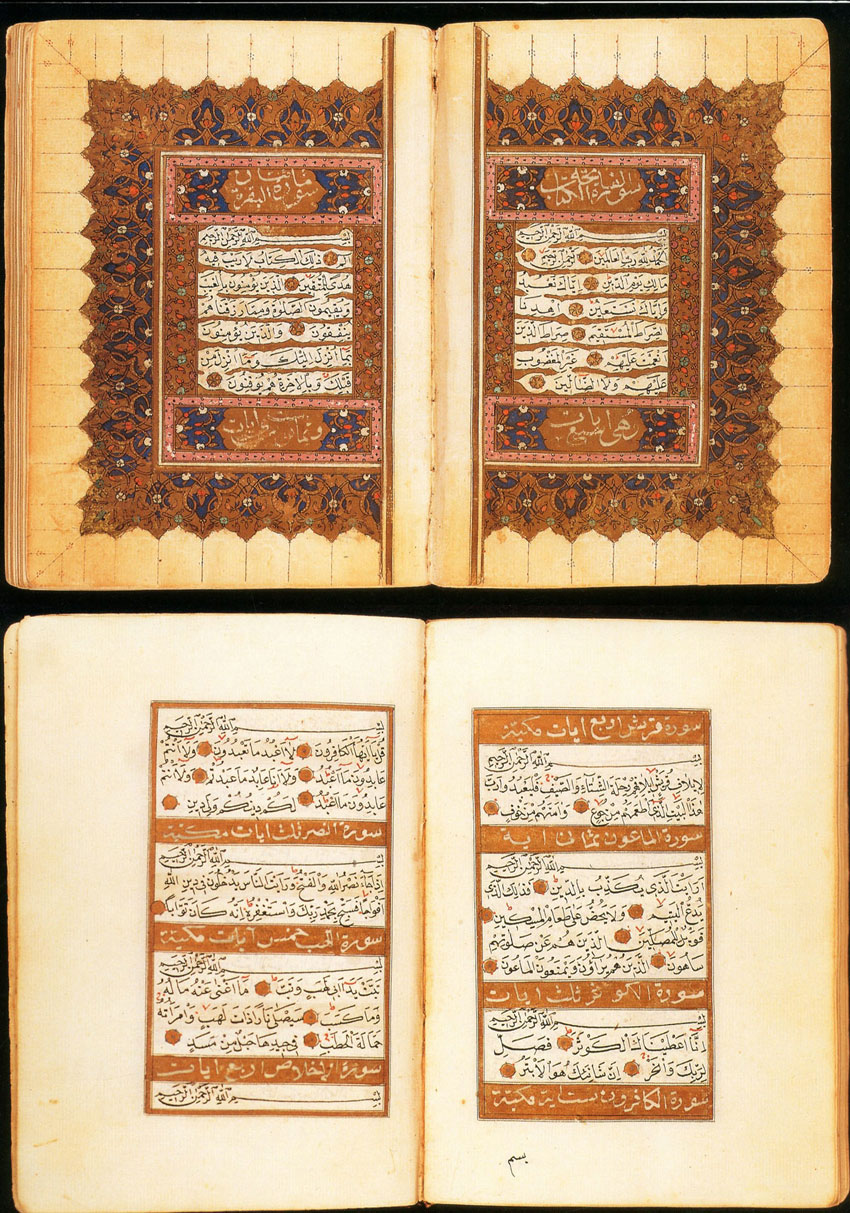 سورة الفاتحة
الكتاب
بسم الله الرحمن الرحيم
الحمد لله رب العالمين الرحمن الرحيم
مالك يوم الدين إياك نعبد
وإياك نستعين اهدنا
الصراط المستقيم صراط الذين
أنعمت عليهم غير المغضوب
عليهم ولا الضالين
وهي سبع آيات
سورة البقرة
بسم الله الرحمن الرحيم
الم ذلك الكتاب لا ريب فيه
هدى للمتقين الذين يؤمنون بالغيب
ويقيمون الصلوة ومما رزقناهم
ينفقون والذين يؤمنون
بما أنزل إليك وما أنزل من
قبلك وبالآخرة هم يوقنون
سورة قريش اربع ايات مكية
بسم الله الرحمن الرحيم
لإيلاف قريش إيلافهم رحلة الشتاء والصيف فليعبدوا رب
هذا البيت الذي أطعمهم من جوع وآمنهم من خوف
سورة الماعون ثماني اية
بسم الله الرحمن الرحيم
أرأيت الذي يكذب بالدين فذلك الذي
يدع اليتيم ولا يحض على طعام المسكين
فويل للمصلين الذين هم عن صلوتهم
ساهون الذين هم يراؤن ويمنعون الماعون
سورة الكوثر ثلث ايات
بسم الله الرحمن الرحيم
إنا أعطيناك الكوثر فصل
لربك وانحر إن شانئك هو الأبتر
سورة الكافرون ست اية مكية
بسم
بسم الله الرحمن الرحيم
قل يا أيها الكافرون لا أعبد ما تعبدون ولا أنتم
عابدون ما أعبد ولا أنا عابد ما عبدتم ولا أنتم
عابدون ما أعبد لكم دينكم ولي دين
سورة النصر ثلث ايات مكية
بسم الله الرحمن الرحيم
إذا جاء نصر الله والفتح ورأيت الناس يدخلون في دين الله
أفواجا فسبح بحمد ربك واستغفره إنه كان توابا
سورة اللهب خمس آيات مكية
بسم الله الرحمن الرحيم
تبت يدا أبي لهب وتب ما أغنى عنه ماله
وما كسب سيصلى نارا ذات لهب وامرأته
حمالة الحطب في جيدها حبل من مسد
سورة الإخلاص اربع ايات
بسم الله الرحمن الرحيم